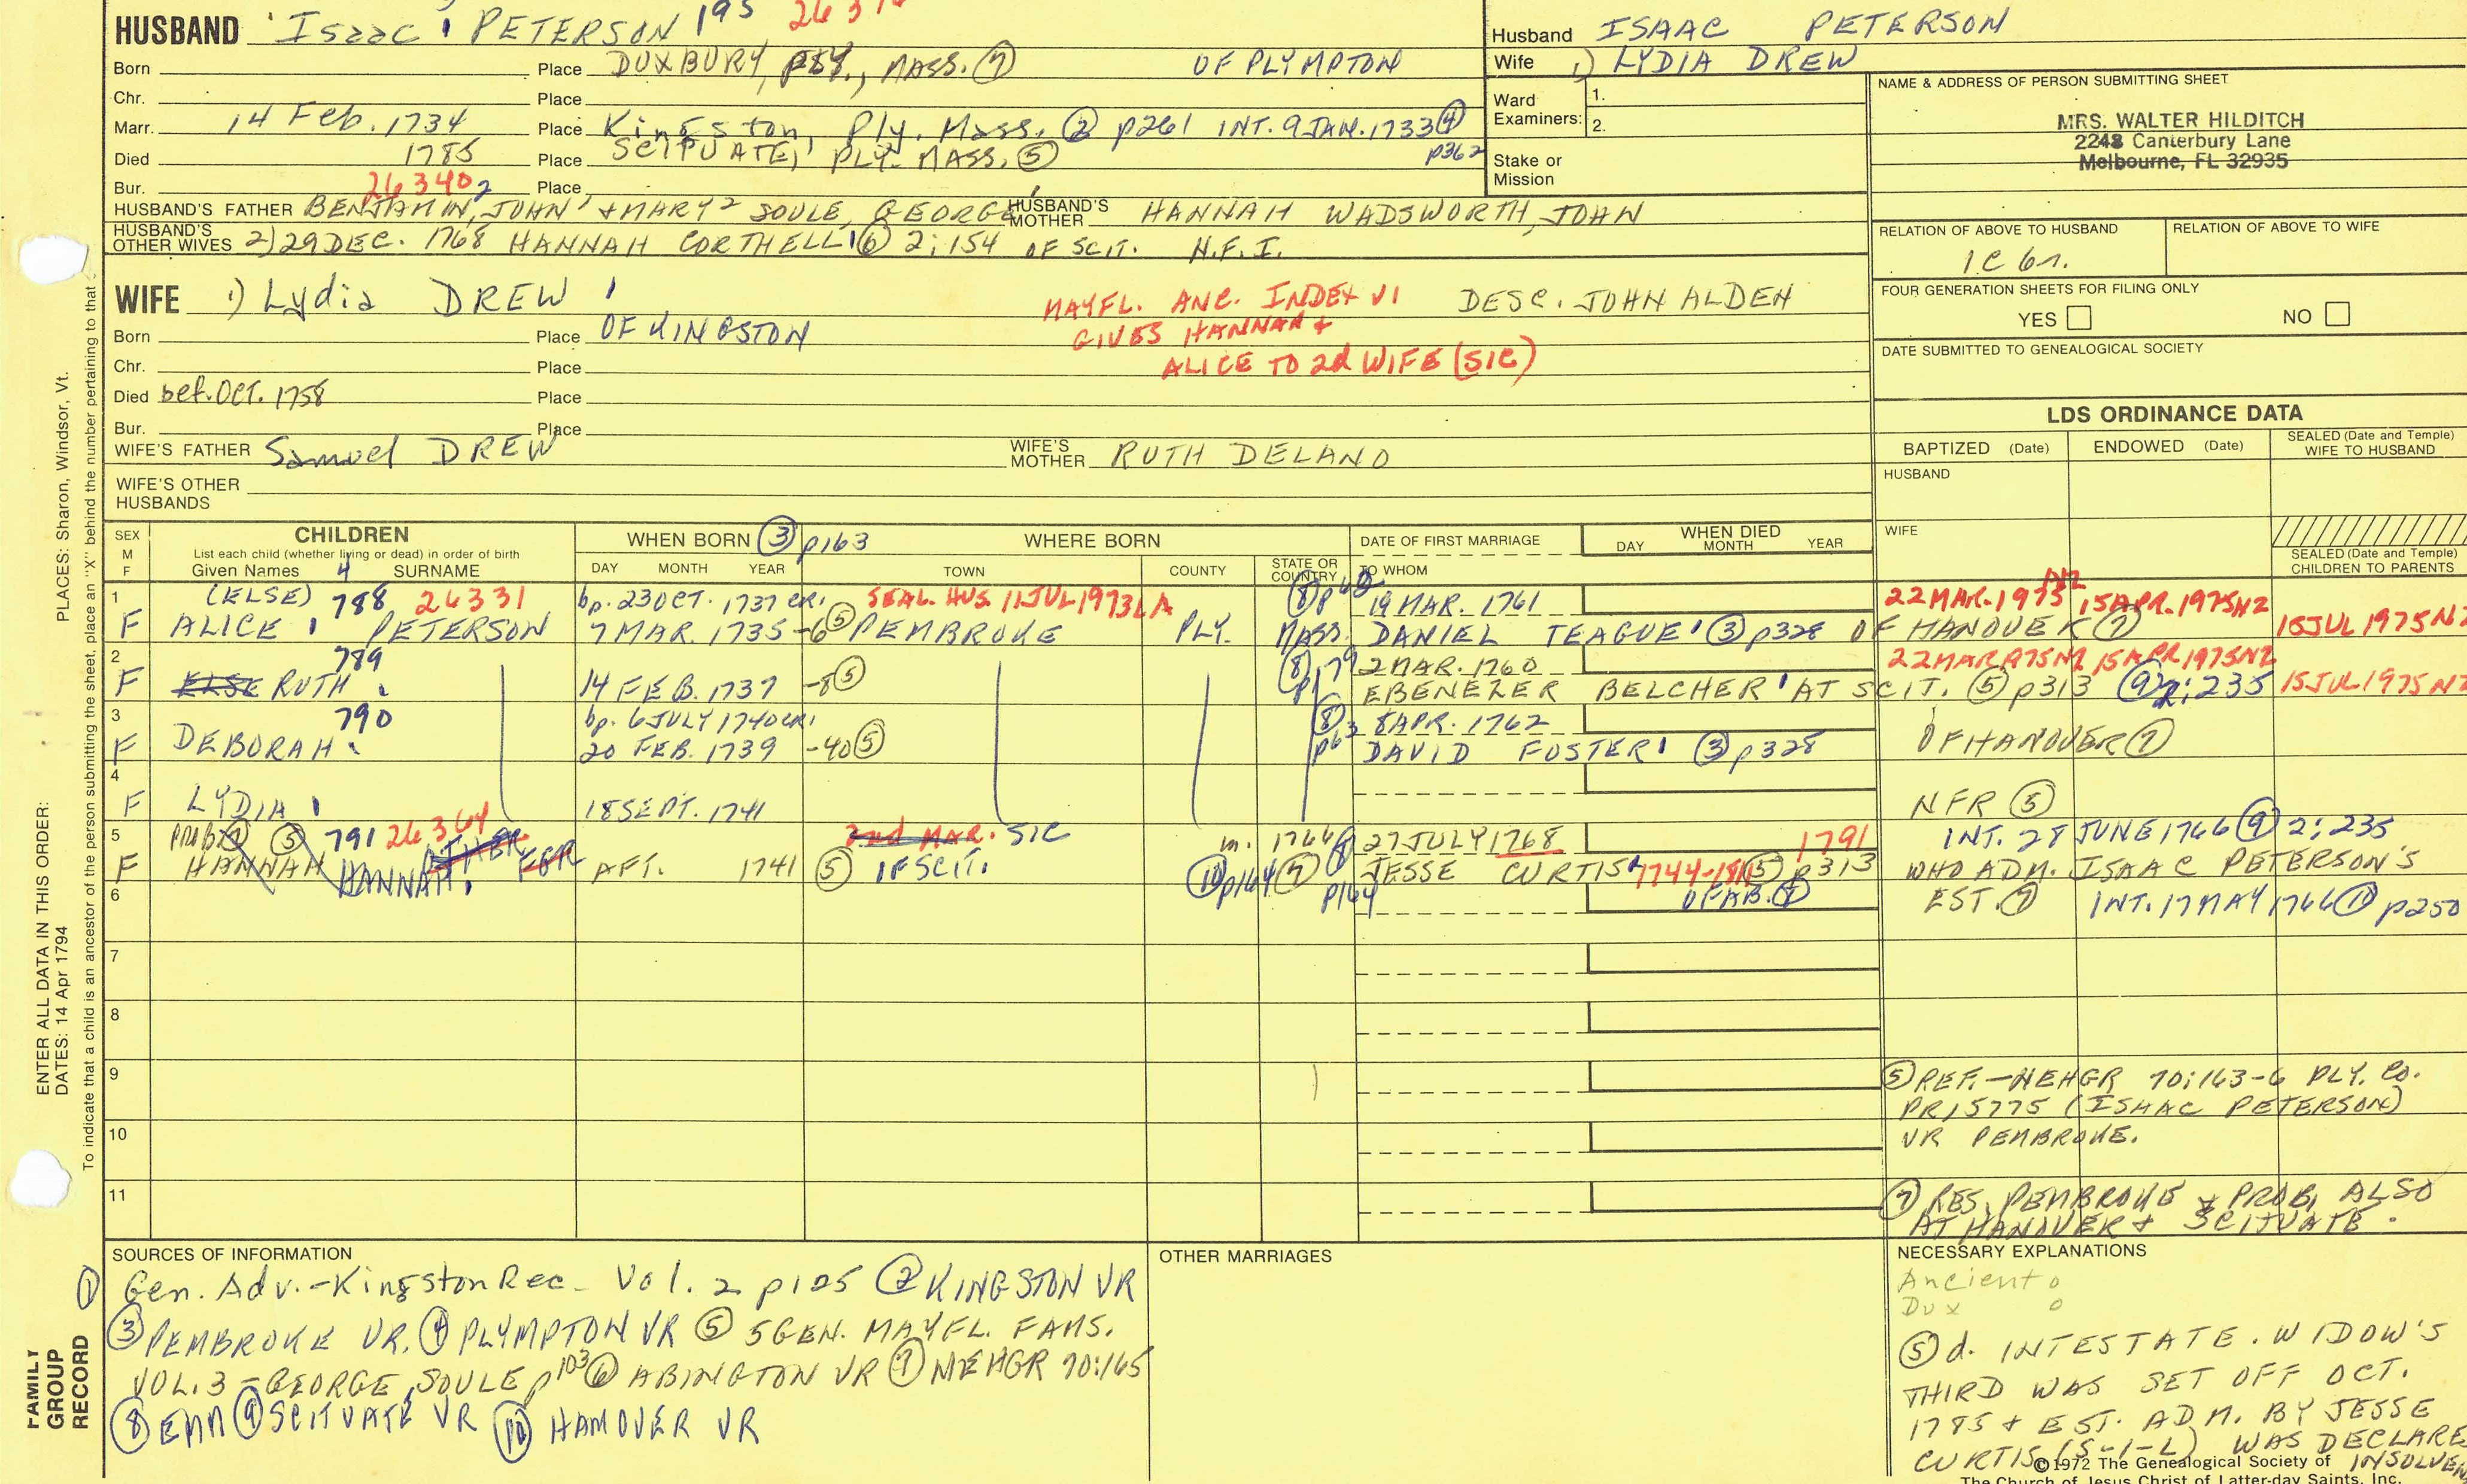 HUSBAND Isaac PETERSON 195
Born Place DUXBURY, PLY., MASS. ⑦ OF PLYMPTON
Chr. Place
Marr. 14 Feb. 1734 Place Kingston, Ply. Mass. ② p261 INT. 9 JAN. 1733 ④ p362
Died 1785 Place SCITUATE, PLY. MASS. ⑤
Bur. 26340 2 Place
HUSBAND'S FATHER BENJAMIN, JOHN + MARY 2 SOULE, GEORGE HUSBAND'S MOTHER HANNAH WADSWORTH, JOHN
HUSBAND'S OTHER WIVES 2) 29 DEC. 1768 HANNAH CORTHELL ⑥ 2:154 OF SCIT. N.F.I.
Husband ISAAC PETERSON
Wife 1) LYDIA DREW
Ward Examiners: 1.
2.
Stake or Mission
NAME & ADDRESS OF PERSON SUBMITTING SHEET
MRS. WALTER HILDITCH
2248 Canterbury Lane
Melbourne, FL 32935
RELATION OF ABOVE TO HUSBAND RELATION OF ABOVE TO WIFE
1C 6r.
FOUR GENERATION SHEETS FOR FILING ONLY
YES NO
DATE SUBMITTED TO GENEALOGICAL SOCIETY
WIFE 1) Lydia DREW 1 DESC. JOHN ALDEN
MAYFL. ANC. INDEX V1
GIVES HANNAH +
ALICE TO 2d WIFE (SIC)
Born Place OF KINGSTON
Chr. Place
Died bef. OCT. 1758 Place
Bur. Place
WIFE'S FATHER Samuel DREW WIFE'S MOTHER RUTH DELANO
WIFE'S OTHER HUSBANDS
LDS ORDINANCE DATA
BAPTIZED (Date) ENDOWED (Date) SEALED (Date and Temple) WIFE TO HUSBAND
HUSBAND
WIFE
SEALED (Date and Temple) CHILDREN TO PARENTS
SEX M F CHILDREN WHEN BORN ③ p163 WHERE BORN DATE OF FIRST MARRIAGE WHEN DIED
List each child (whether living or dead) in order of birth
Given Names 4 SURNAME DAY MONTH YEAR TOWN COUNTY STATE OR COUNTRY TO WHOM DAY MONTH YEAR
1 (ELSE) 788 26331 bp. 23 OCT. 1737 SEAL. HUS. 11 JUL 1973 LA ⑧ 19 MAR. 1761 22 MAR. 1975 NZ 15 APR. 1975 NZ
F ALICE PETERSON 7 MAR. 1735 -6 ⑤ PEMBROKE PLY. MASS. DANIEL TEAGUE ③ p328 OF HANOVER ⑦ 15 JUL 1975 NZ
2 789 ⑧ p179 2 MAR. 1760 22 MAR 1975 NZ 15 APR 1975 NZ
F ELSE RUTH 14 FEB. 1737 -8 ⑤ EBENEZER BELCHER AT SCIT. ⑤ p313 ⑨ 2:235 15 JUL 1975 NZ
3 790 bp. 6 JULY 1740 ⑧ p63 8 APR. 1762
F DEBORAH 20 FEB. 1739 -40 ⑤ DAVID FOSTER ③ p328 OF HANOVER ⑦
4
F LYDIA 18 SEPT. 1741 NFR ⑤
5 PROB ⑦ ⑤ 791 26364 2nd MAR. SIC m. 1766 27 JULY 1768 1791 INT. 28 JUNE 1766 ⑨ 2:235
F HANNAH HANNAH AFT. 1741 ⑤ IF SCIT. ⑩ p164 ⑦ p164 JESSE CURTIS ⑤ p313 WHO ADM. ISAAC PETERSON'S
6 EST. ⑦ INT. 17 MAY 1766 p250
7
8
9
10
11
⑤ REF. - NEHGR 70:163-6 PLY. Co.
PR 15775 (ISAAC PETERSON)
VR PEMBROKE.
⑦ RES. PEMBROKE & PROB. ALSO
AT HANOVER & SCITUATE.
SOURCES OF INFORMATION
① Gen. Adv. - Kingston Rec. Vol. 2 p125 ② KINGSTON VR
③ PEMBROKE VR. ④ PLYMPTON VR ⑤ 5 GEN. MAYFL. FAMS.
VOL. 3 - GEORGE SOULE p103 ⑥ ABINGTON VR ⑦ NEHGR 70:165
⑧ EMM ⑨ SCITUATE VR ⑩ HANOVER VR
OTHER MARRIAGES
NECESSARY EXPLANATIONS
Ancient o
Dux o
⑤ d. INTESTATE. WIDOW'S
THIRD WAS SET OFF OCT.
1785 + EST. ADM. BY JESSE
CURTIS (S-I-L) WAS DECLARE
INSOLVEN
©1972 The Genealogical Society of
The Church of Jesus Christ of Latter-day Saints, Inc.
PLACES: Sharon, Windsor, Vt.
ENTER ALL DATA IN THIS ORDER:
DATES: 14 Apr 1794
To indicate that a child is an ancestor of the person submitting the sheet, place an "X" behind the number pertaining to that
FAMILY GROUP RECORD